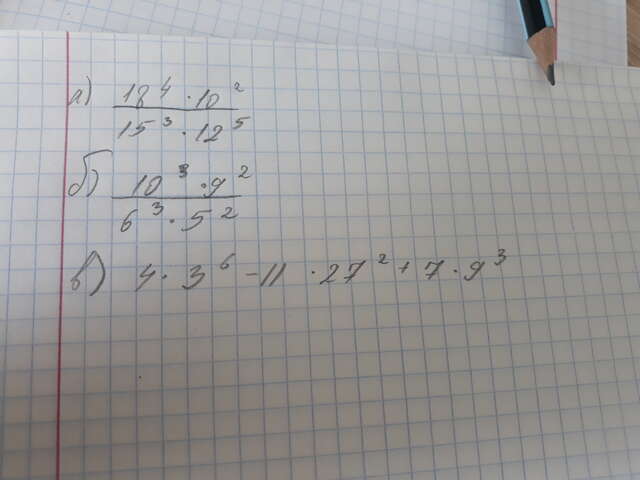 а) 18⁴ · 10² / 15³ · 12⁵
б) 10³ · 9² / 6³ · 5²
в) 4 · 3⁶ - 11 · 27² + 7 · 9³